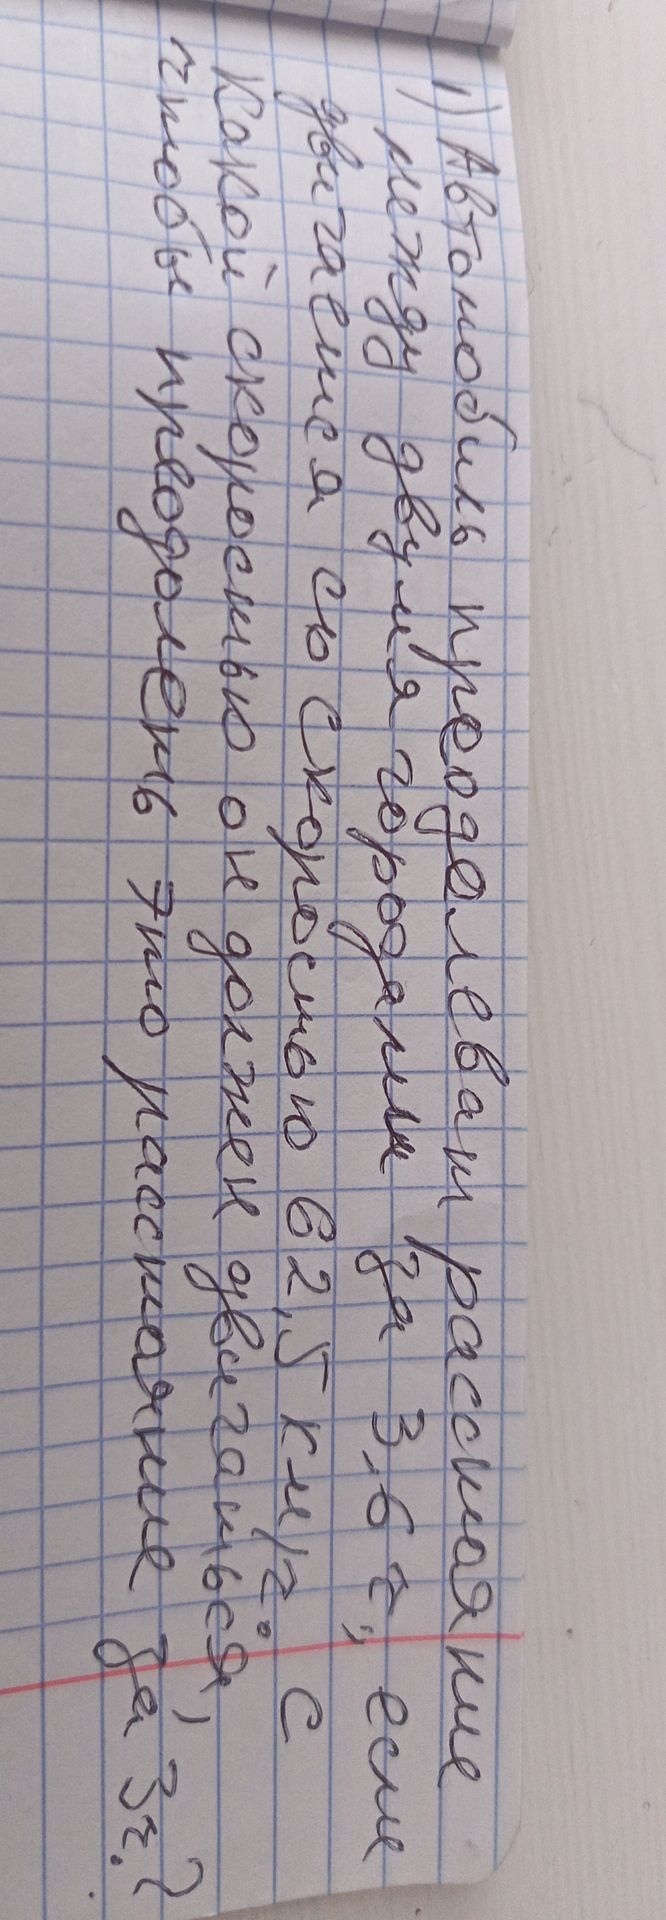 1) Автомобиль преодолеват расстояние
между двумя городами за 3,6 ч, если
двигается со скоростью 62,5 км/ч. С
какой скоростью он должен двигаться,
чтобы преодолеть это расстояние за 3ч?